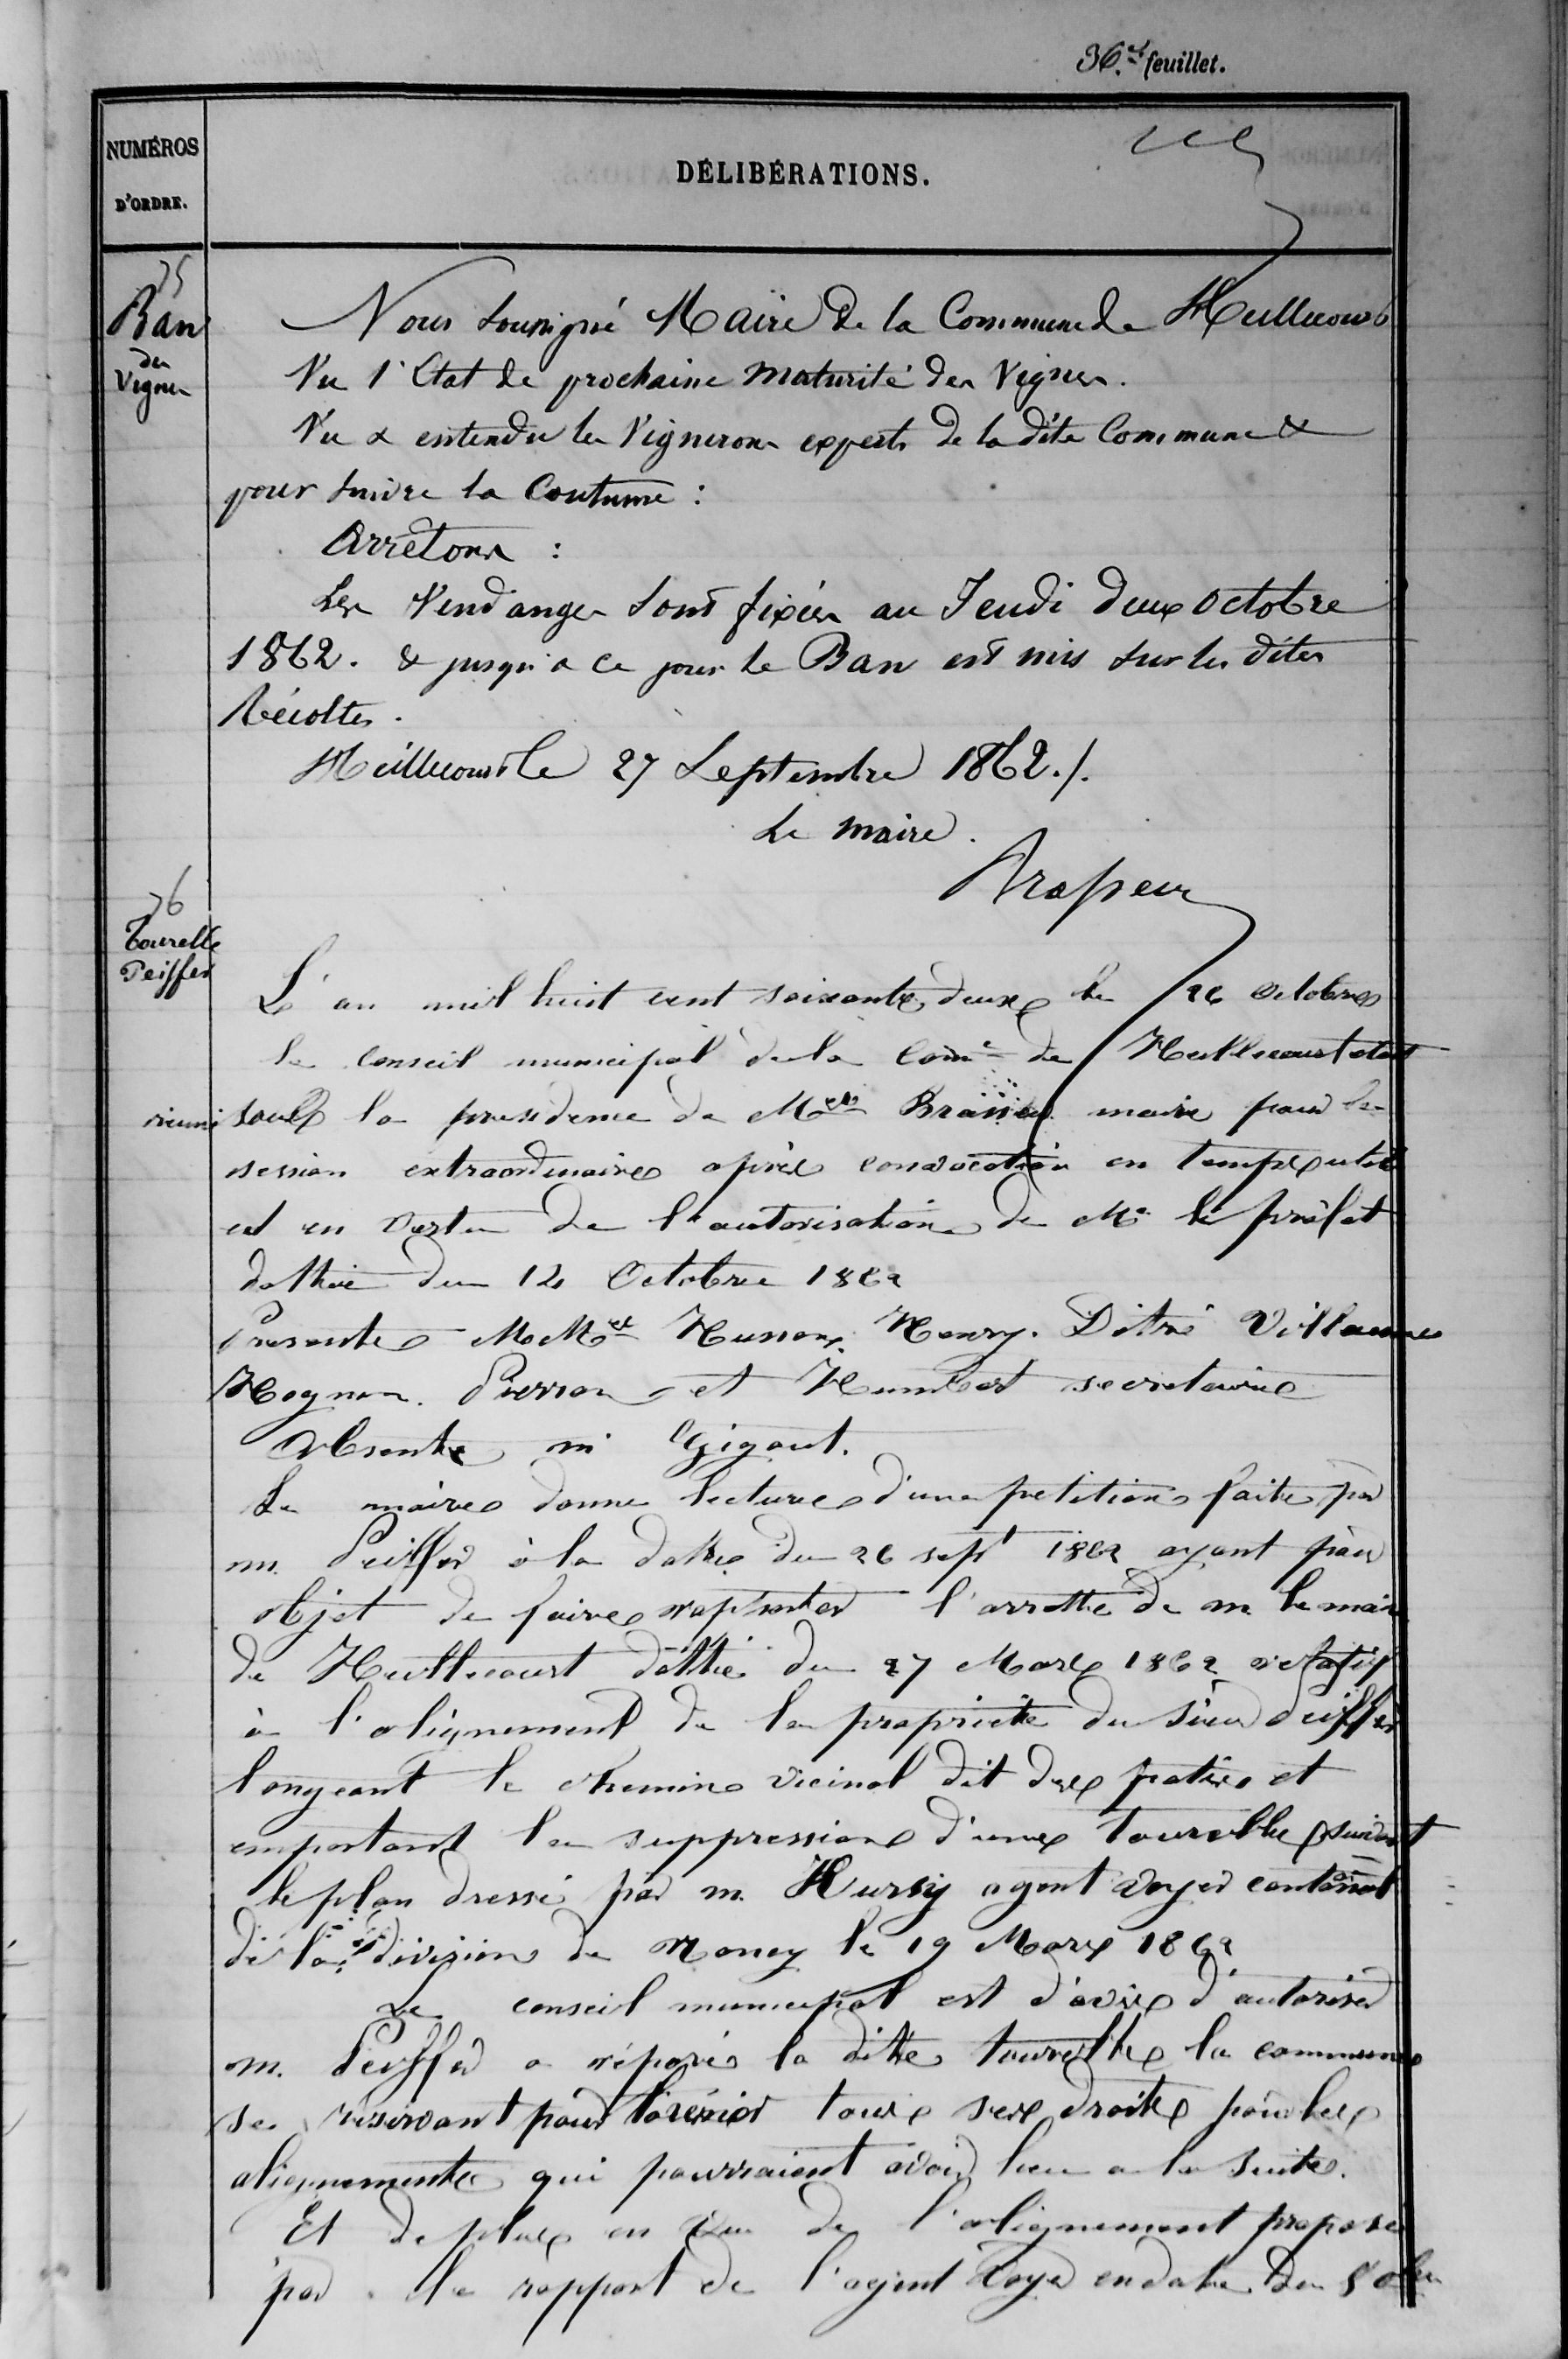 36.et feuillet.
NUMÉROS
D'ORDRE.
DÉLIBÉRATIONS.
75
Ban
des
Vignes
Nous soussigné Maire de la Commune de Heillecourt
Vu l'Etat de prochaine maturité des Vignes.
Vu & entendu les Vignerons experts de la dite Commune &
pour suivre la Coutume :
Arrêtons :
Les Vendanges sont fixées au Jeudi deux Octobre
1862. & jusqu'a ce jour le Ban est mis sur les dites
Récoltes.
Heillecourt le 27 Septembre 1862./.
Le maire.
76
Tourelle
Peiffer
L'an mil huit cent soixante deux le 26 octobre
le conseil municipal de la Come de Heillecourt etant
reuni sous la presidence de Mr maire pour la
session extraordinaire après convocation en temps utile
et en vertu de l'autorisation de Mr le préfet
dattée du 14 Octobre 1862
Presents MM Husson, Henry. Ditré Villaume
Hognon. Pierron et Humbert secretaire
Absents m Gigout.
Le maire donne lecture d'une petition faite par
m. Peiffer à la datte du 26 sept 1862 ayant pour
objet de faire rapporter l'arretté de m le maire
de Heillecourt dattée du 27 Mars 1862 relatif
à l'alignement de la propriete du sieur Peiffer
longeant le chemin vicinal dit des patis et
emportant la suppression d'une tourelle suivant
le plan dressé par m. Hursy agent voyer cantonal
de la division de Nancy le 19 Mars 1862
Le conseil municipal est d'avis d'autoriser
m. Peiffer a réparer la ditte tourelle la commune
se réservant pour l'avenir tous ses droits pour les
alignements qui pourraient avoir lieu a la suite.
Et de plus en vue de l'alignement proposé
par le rapport de l'agent Voyer en date du 5 8bre